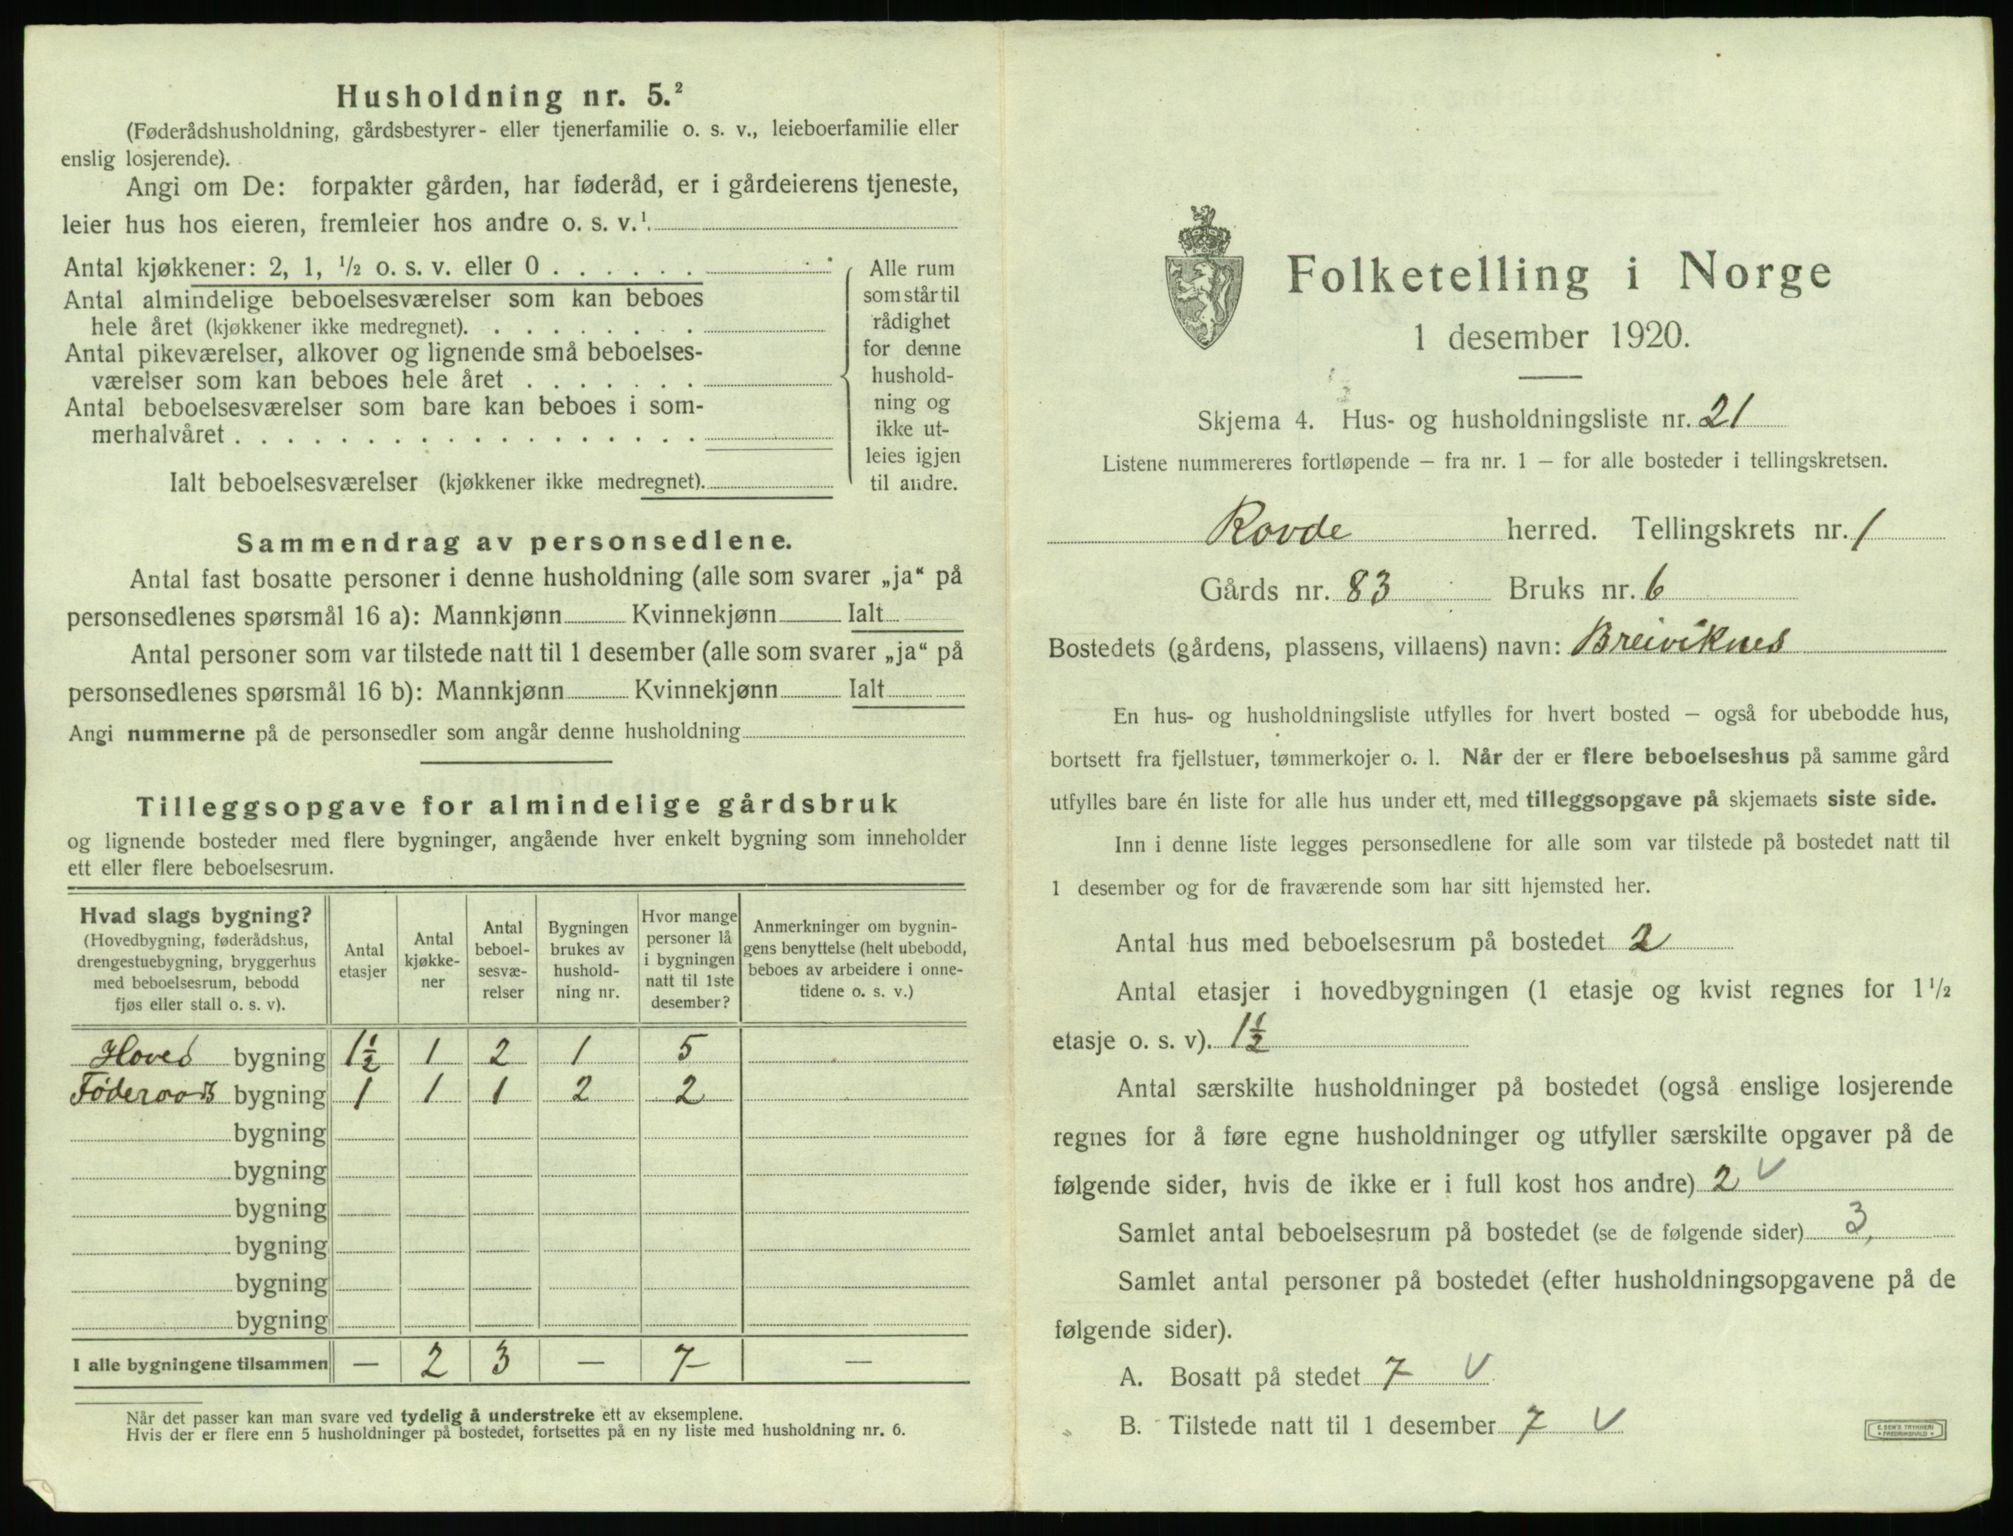 Husholdning nr. 5.²
(Føderådshusholdning, gårdsbestyrer- eller tjenerfamilie o. s. v., leieboerfamilie eller
enslig losjerende).
Angi om De: forpakter gården, har føderåd, er i gårdeierens tjeneste,
leier hus hos eieren, fremleier hos andre o. s. v.¹
Antal kjøkkener: 2, 1, ½ o. s. v. eller 0 . . . . . .
Antal almindelige beboelsesværelser som kan beboes
hele året (kjøkkener ikke medregnet). . . . . . . . .
Antal pikeværelser, alkover og lignende små beboelses-
værelser som kan beboes hele året . . . . . . .
Antal beboelsesværelser som bare kan beboes i som-
merhalvåret . . . . . . . . . . . . . . . . . .
Ialt beboelsesværelser (kjøkkener ikke medregnet).
Alle rum
som står til
rådighet
for denne
hushold-
ning og
ikke ut-
leies igjen
til andre.
Sammendrag av personsedlene.
Antal fast bosatte personer i denne husholdning (alle som svarer „ja“ på
personsedlenes spørsmål 16 a): Mannkjønn Kvinnekjønn Ialt
Antal personer som var tilstede natt til 1 desember (alle som svarer „ja“ på
personsedlenes spørsmål 16 b): Mannkjønn Kvinnekjønn Ialt
Angi nummerne på de personsedler som angår denne husholdning
Tilleggsopgave for almindelige gårdsbruk
og lignende bosteder med flere bygninger, angående hver enkelt bygning som inneholder
ett eller flere beboelsesrum.
Hvad slags bygning?
(Hovedbygning, føderådshus,
drengestuebygning, bryggerhus
med beboelsesrum, bebodd
fjøs eller stall o. s. v).
Antal
etasjer
Antal
kjøkke-
ner
Antal
beboel-
sesvæ-
relser
Bygningen
brukes av
hushold-
ning nr.
Hvor mange
personer lå
i bygningen
natt til 1ste
desember?
Anmerkninger om bygnin-
gens benyttelse (helt ubebodd,
beboes av arbeidere i onne-
tidene o. s. v.)
Hoved bygning 1½ 1 2 1 5
Føderaads bygning 1 1 1 2 2
bygning
bygning
bygning
bygning
bygning
bygning
I alle bygningene tilsammen — 2 3 — 7 —
Når det passer kan man svare ved tydelig å understreke ett av eksemplene.
Hvis der er flere enn 5 husholdninger på bostedet, fortsettes på en ny liste med husholdning nr. 6.
Folketelling i Norge
1 desember 1920.
Skjema 4. Hus- og husholdningsliste nr. 21
Listene nummereres fortløpende — fra nr. 1 — for alle bosteder i tellingskretsen.
Rovde herred. Tellingskrets nr. 1
Gårds nr. 83 Bruks nr. 6
Bostedets (gårdens, plassens, villaens) navn: Breiviknes
En hus- og husholdningsliste utfylles for hvert bosted — også for ubebodde hus,
bortsett fra fjellstuer, tømmerkojer o. l. Når der er flere beboelseshus på samme gård
utfylles bare én liste for alle hus under ett, med tilleggsopgave på skjemaets siste side.
Inn i denne liste legges personsedlene for alle som var tilstede på bostedet natt til
1 desember og for de fraværende som har sitt hjemsted her.
Antal hus med beboelsesrum på bostedet 2
Antal etasjer i hovedbygningen (1 etasje og kvist regnes for 1½
etasje o. s. v). 1½
Antal særskilte husholdninger på bostedet (også enslige losjerende
regnes for å føre egne husholdninger og utfyller særskilte opgaver på de
følgende sider, hvis de ikke er i full kost hos andre) 2 ✓
Samlet antal beboelsesrum på bostedet (se de følgende sider) 3,
Samlet antal personer på bostedet (efter husholdningsopgavene på de
følgende sider).
A. Bosatt på stedet 7 ✓
B. Tilstede natt til 1 desember 7 ✓